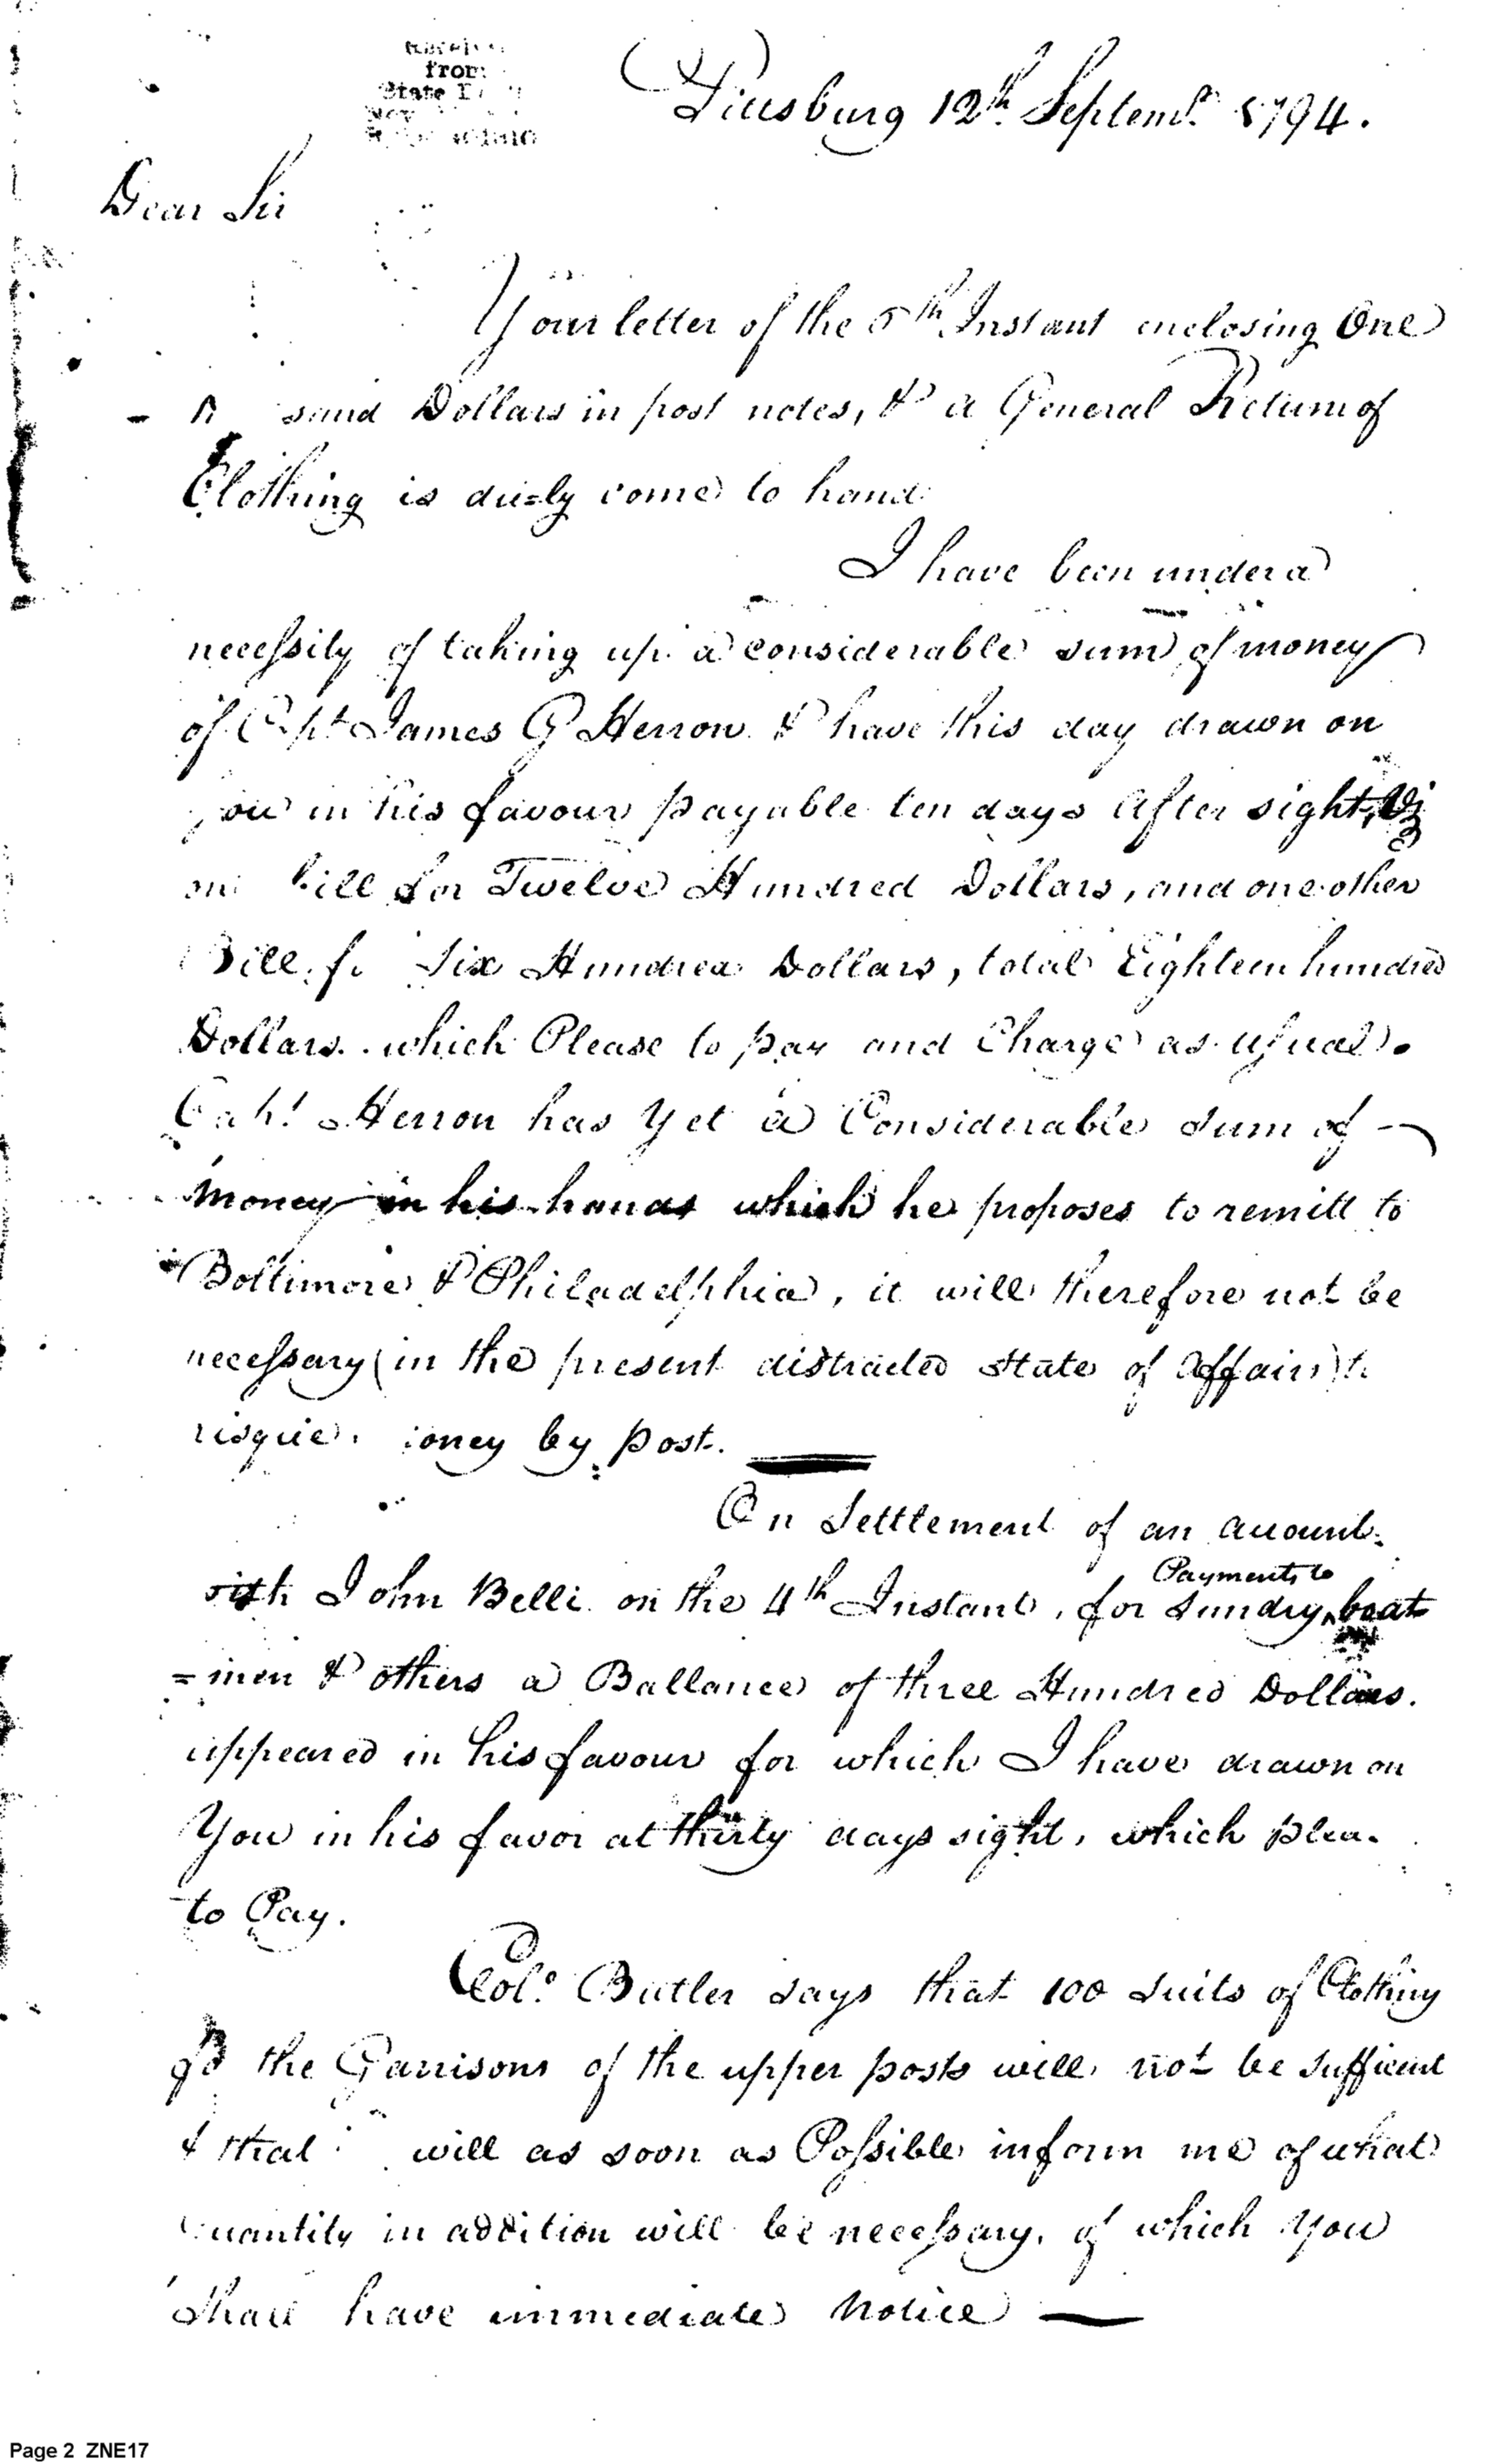 from
State
Pittsburg 12th Septemr. 1794.
Dear Sir
Your letter of the 5th Instant enclosing One
sand Dollars in post notes, & a General Return of
Clothing is du=ly come to hand
I have been under a
necessity of taking up a considerable sum of money
of Capt James G Herron & have this day drawn on
you in his favour payable ten days after sight, Viz
one bill for Twelve Hundred Dollars, and one other
Bill for Six Hundred Dollars, total Eighteen hundred
Dollars. which Please to pay and Charge as usual.
Capt. Herron has yet a Considerable sum of
money in his hands which he proposes to remitt to
Boltimore & Philadelphia, it will therefore not be
necessary (in the present distracted state of affairs) to
risque money by post.
On Settlement of an account
with John Belli on the 4th Instant, for sundry Payments to boat
=men & others a Ballance of three Hundred Dollars.
appeared in his favour for which I have drawn on
You in his favor at thirty days sight, which plea
to Pay.
Colo. Butler says that 100 suits of Clothing
the Garrisons of the upper posts will not be sufficient
& that will as soon as Possible inform me of what
quantity in addition will be necessary, of which You
shall have immediate notice —
Page 2 ZNE17